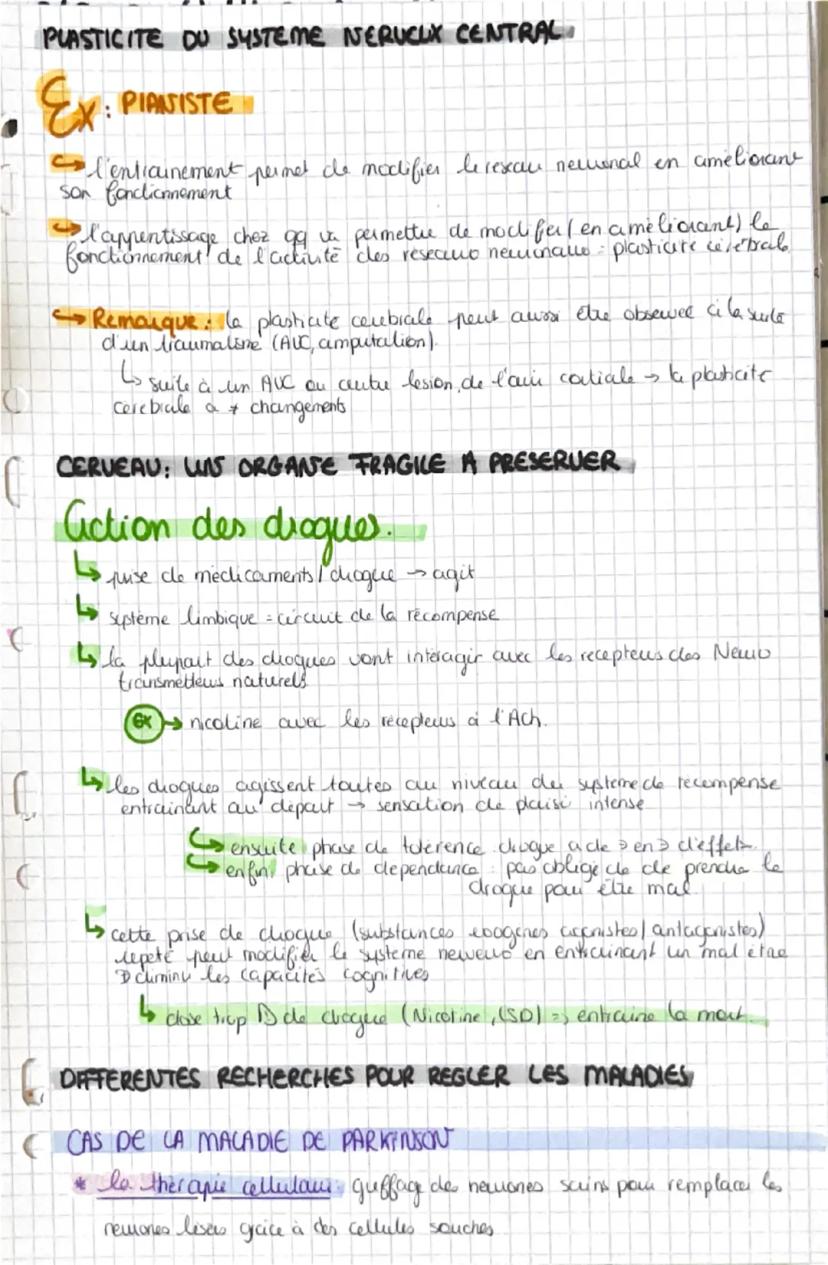 PLASTICITE DU SYSTEME NERVEUX CENTRAL
Ex: PIANISTE
↳ l'entrainement permet de modifier le reseau neuronal en améliorant
son fonctionnement
↳ l'apprentissage chez qq va permettre de modifier (en améliorant) le
fonctionnement de l'activité des reseaux neuronaux : plasticité cérébrale
↳ Remarque : la plasticité cerebrale peut aussi être observee à la suite
d'un traumatisme (AVC, amputation).
↳ suite à un AVC ou autre lesion de l'aire corticale → la plasticité
cerebrale a ≠ changements
CERVEAU: UN ORGANE FRAGILE A PRESERVER
Action des drogues.
↳ prise de médicaments / drogue → agit
↳ système limbique = circuit de la récompense
↳ la plupart des drogues vont interagir avec les recepteurs des Neuro
transmetteurs naturels
EX → nicotine avec les recepteurs à l'Ach.
↳ les drogues agissent toutes au niveau du systeme de recompense
entrainant au départ → sensation de plaisir intense
↳ ensuite phase de tolérence drogue a de > en > d'effets.
↳ enfin, phase de dependance : pas obligé de de prendre le
drogue pour être mal
↳ cette prise de drogue (substances exogènes agonistes / antagonistes)
repeté peut modifier le systeme nerveux en entrainant un mal être
diminu les capacités cognitives
↳ dose trop de drogue (Nicotine, LSD) => entraine la mort.
DIFFERENTES RECHERCHES POUR REGLER LES MALADIES
CAS DE LA MALADIE DE PARKINSON
* la thérapie cellulaire: greffage des neurones sains pour remplacer les
neurones lésés grâce à des cellules souches